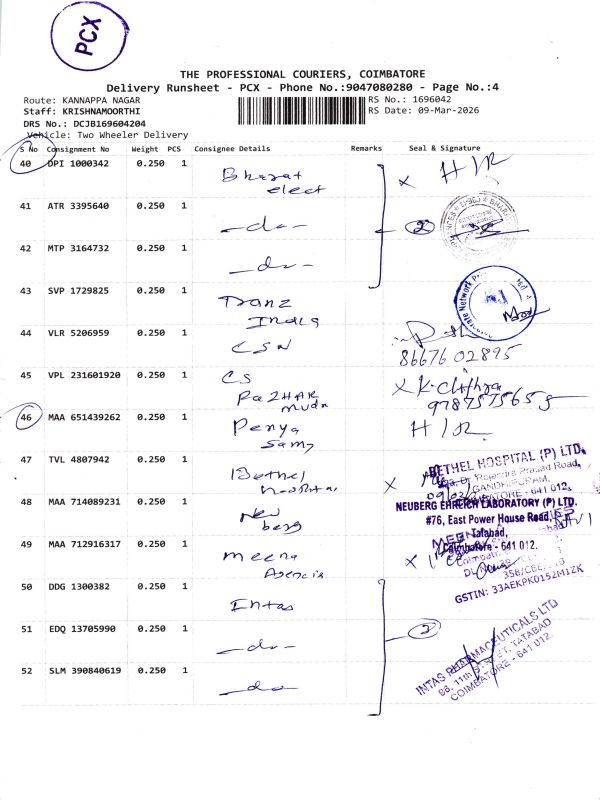 PCX
THE PROFESSIONAL COURIERS, COIMBATORE
Delivery Runsheet - PCX - Phone No.:9047080280 - Page No.:4
Route: KANNAPPA NAGAR
RS No.: 1696042
Staff: KRISHNAMOORTHI
RS Date: 09-Mar-2026
DRS No.: DCJB169604204
Vehicle: Two Wheeler Delivery
S No Consignment No Weight PCS Consignee Details Remarks Seal & Signature
40 DPI 1000342 0.250 1 Bharat elect H/R
41 ATR 3395640 0.250 1 -do- 2
42 MTP 3164732 0.250 1 -do-
43 SVP 1729825 0.250 1 Tranz India
44 VLR 5206959 0.250 1 CSN 86676 02895
45 VPL 231601920 0.250 1 CS Pazhar mudr x K. Chithra 9787575655
46 MAA 651439262 0.250 1 Penya Samy H/R
47 TVL 4807942 0.250 1 Bethel Hospital x
BETHEL HOSPITAL (P) LTD.
Rajendra Prasad Road,
GANDHIPURAM,
COIMBATORE - 641 012.
48 MAA 714089231 0.250 1 New berg
NEUBERG EHRLICH LABORATORY (P) LTD.
#76, East Power House Road,
Tatabad,
Coimbatore - 641 012.
49 MAA 712916317 0.250 1 meena Agencis x
GSTIN: 33AEKPK0152M1ZK
50 DDG 1300382 0.250 1 Intas
51 EDQ 13705990 0.250 1 -do- 2
52 SLM 390840619 0.250 1 -do-
INTAS PHARMACEUTICALS LTD
98, 11th STREET, TATABAD
COIMBATORE - 641 012.